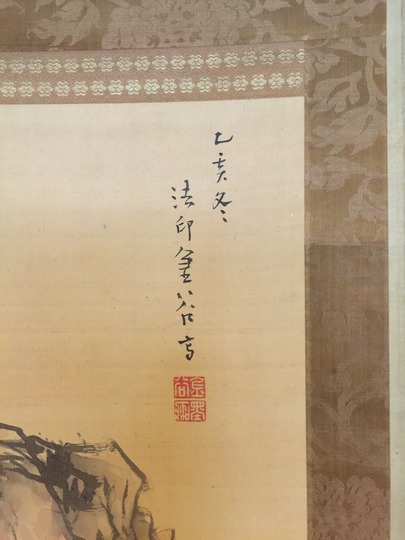 乙亥冬
法印金谷写